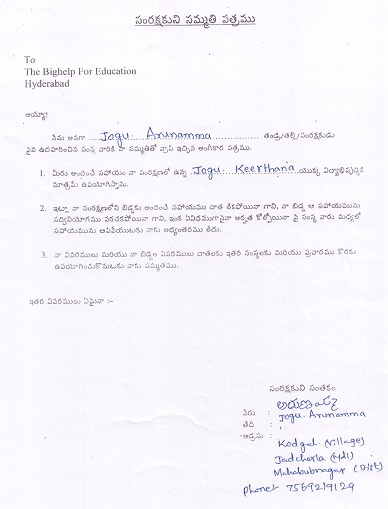 సంరక్షకుని సమ్మతి పత్రము
To
The Bighelp For Education
Hyderabad
అయ్యా!
నేను అనగా ....Jogu Arunamma................ తండ్రి/తల్లి/సంరక్షకుడు
పైన ఉదహరించిన సంస్థ వారికి నా సమ్మతితో వ్రాసి ఇచ్చిన అంగీకార పత్రము.
1. మీరు అందించే సహాయం నా సంరక్షణలో ఉన్న ..Jogu Keerthana యొక్క విద్యాభివృద్ధికి
మాత్రమే ఉపయోగిస్తాము.
2. ఇట్లా నా సంరక్షణలోని బిడ్డకు అందించే సహాయము దాత లేకపోయినా గాని, నా బిడ్డ ఆ సహాయమును
సద్వినియోగము పరచకపోయినా గాని, ఇంక ఏవిధముగానైనా అర్హత కోల్పోయినా పై సంస్థ వారు మధ్యలో
సహాయమును ఆపివేయుటకు నాకు అభ్యంతరము లేదు.
3. నా వివరములు మరియు నా బిడ్డల వివరములు దాతలకు ఇతర సంస్థలకు మరియు ప్రచారము కొరకు
ఉపయోగించుకొనుటకు నాకు సమ్మతము.
ఇతర వివరములు ఏమైనా :-
సంరక్షకుని సంతకం
అరుణమ్మ
పేరు : Jogu. Arunamma
తేది :
అడ్రసు : Kodgal (village)
Jadcherla (Mdl)
Mahabubnagar (Dist)
phone:- 7569219129